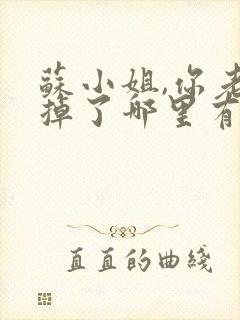 蘇小姐,你老
掉了哪里有
直直的曲綫